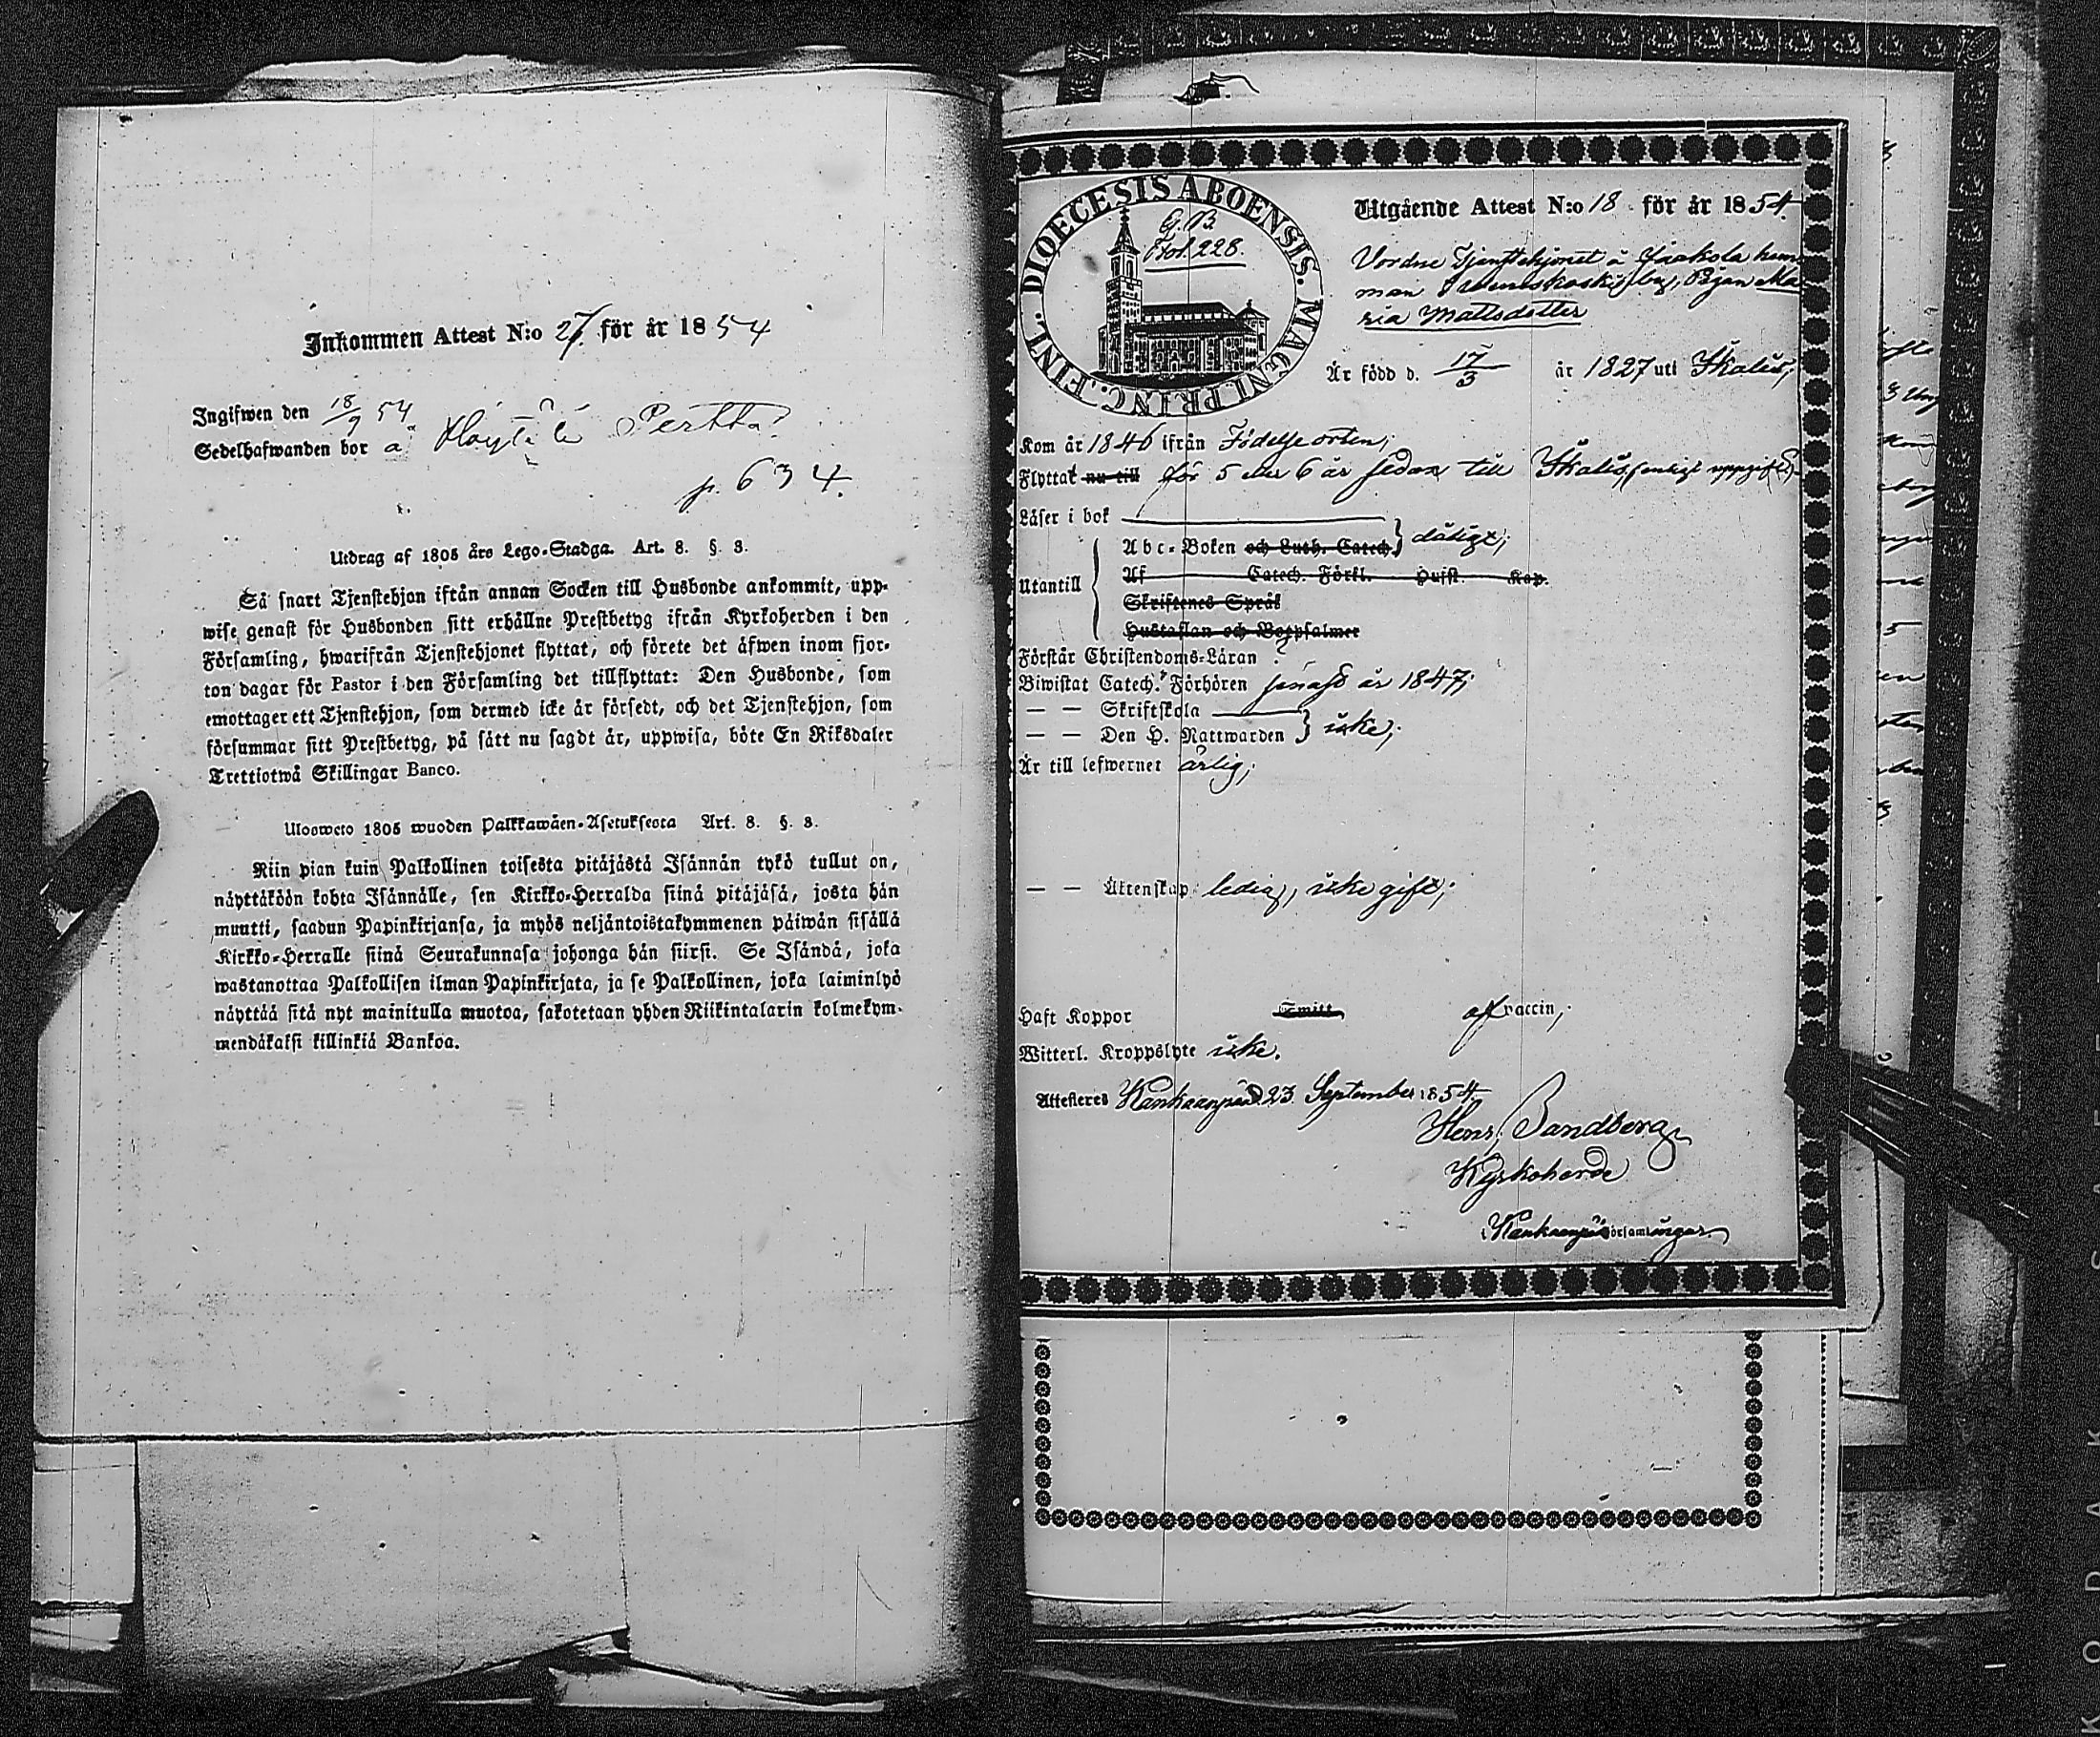 Inkommen Attest N:o 27. för år 1854
Ingifwen den 18/9 54
Sedelhafwanden bor å Höytölä Perttu
p. 634.
Utdrag af 1805 års Lego-Stadga. Art. 8. §. 3.
Så snart Tjenstehjon ifrån annan Socken till Husbonde ankommit, upp-
wise genast för Husbonden sitt erhållne Prestbetyg ifrån Kyrkoherden i den
Församling, hwarifrån Tjenstehjonet flyttat, och förete det äfwen inom fjor-
ton dagar för Pastor i den Församling det tillflyttat: Den Husbonde, som
emottager ett Tjenstehjon, som dermed icke är försedt, och det Tjenstehjon, som
försummar sitt Prestbetyg, på sätt nu sagdt är, uppwisa, böte En Riksdaler
Trettiotwå Skillingar Banco.
Ulosweto 1805 wuoden Palkkawäen-Asetuksesta Art. 8. §. 3.
Niin pian kuin Palkollinen toisesta pitäjästä Isännän tykö tullut on,
näyttäköön kohta Isännälle, sen Kirkko-Herralda siinä pitäjäsä, josta hän
muutti, saadun Papinkirjansa, ja myös neljäntoistakymmenen päiwän sisällä
Kirkko-Herralle siinä Seurakunnasa johonga hän siirsi. Se Isändä, joka
wastanottaa Palkollisen ilman Papinkirjata, ja se Palkollinen, joka laiminlyö
näyttää sitä nyt mainitulla muotoa, sakotetaan yhden Riikintalarin kolmekym-
mendäkaksi killinkiä Bankoa.
DIOECESIS ABOENSIS. MAGNI. PRINC. FINL.
G.B.
Fol. 228.
Utgående Attest N:o 18 för år 1854.
Vordne Tjenstehjonet å hem-
man by, Pigan Ma-
ria Mattsdotter
Är född d. 17/3 år 1827 uti Ikalis,
Kom år 1846 ifrån Födelseorten;
Flyttat nu till för 5 eller 6 år sedan till Ikalis, enligt uppgift;
Läser i bok
Abc-Boken och Luth. Catech. } dåligt;
Utantill { Af Catech. Förkl. Hufst. Kap.
Skriftenes Språk
Hustaflan och Botpsalmer
Förstår Christendoms-Läran ?
Biwistat Catech. Förhören senast år 1847;
— — Skriftskola
— — Den H. Nattwarden } icke;
Är till lefwernet ärlig;
— — Äktenskap ledig, icke gift;
Haft Koppor Smitt af vaccin;
Witterl. Kroppslyte icke.
Attesteres Kankaanpää d. 23 September 1854.
Hens. Sandberg
Kyrkoherde
i Kankaanpää församlingar
KODAK SAFE